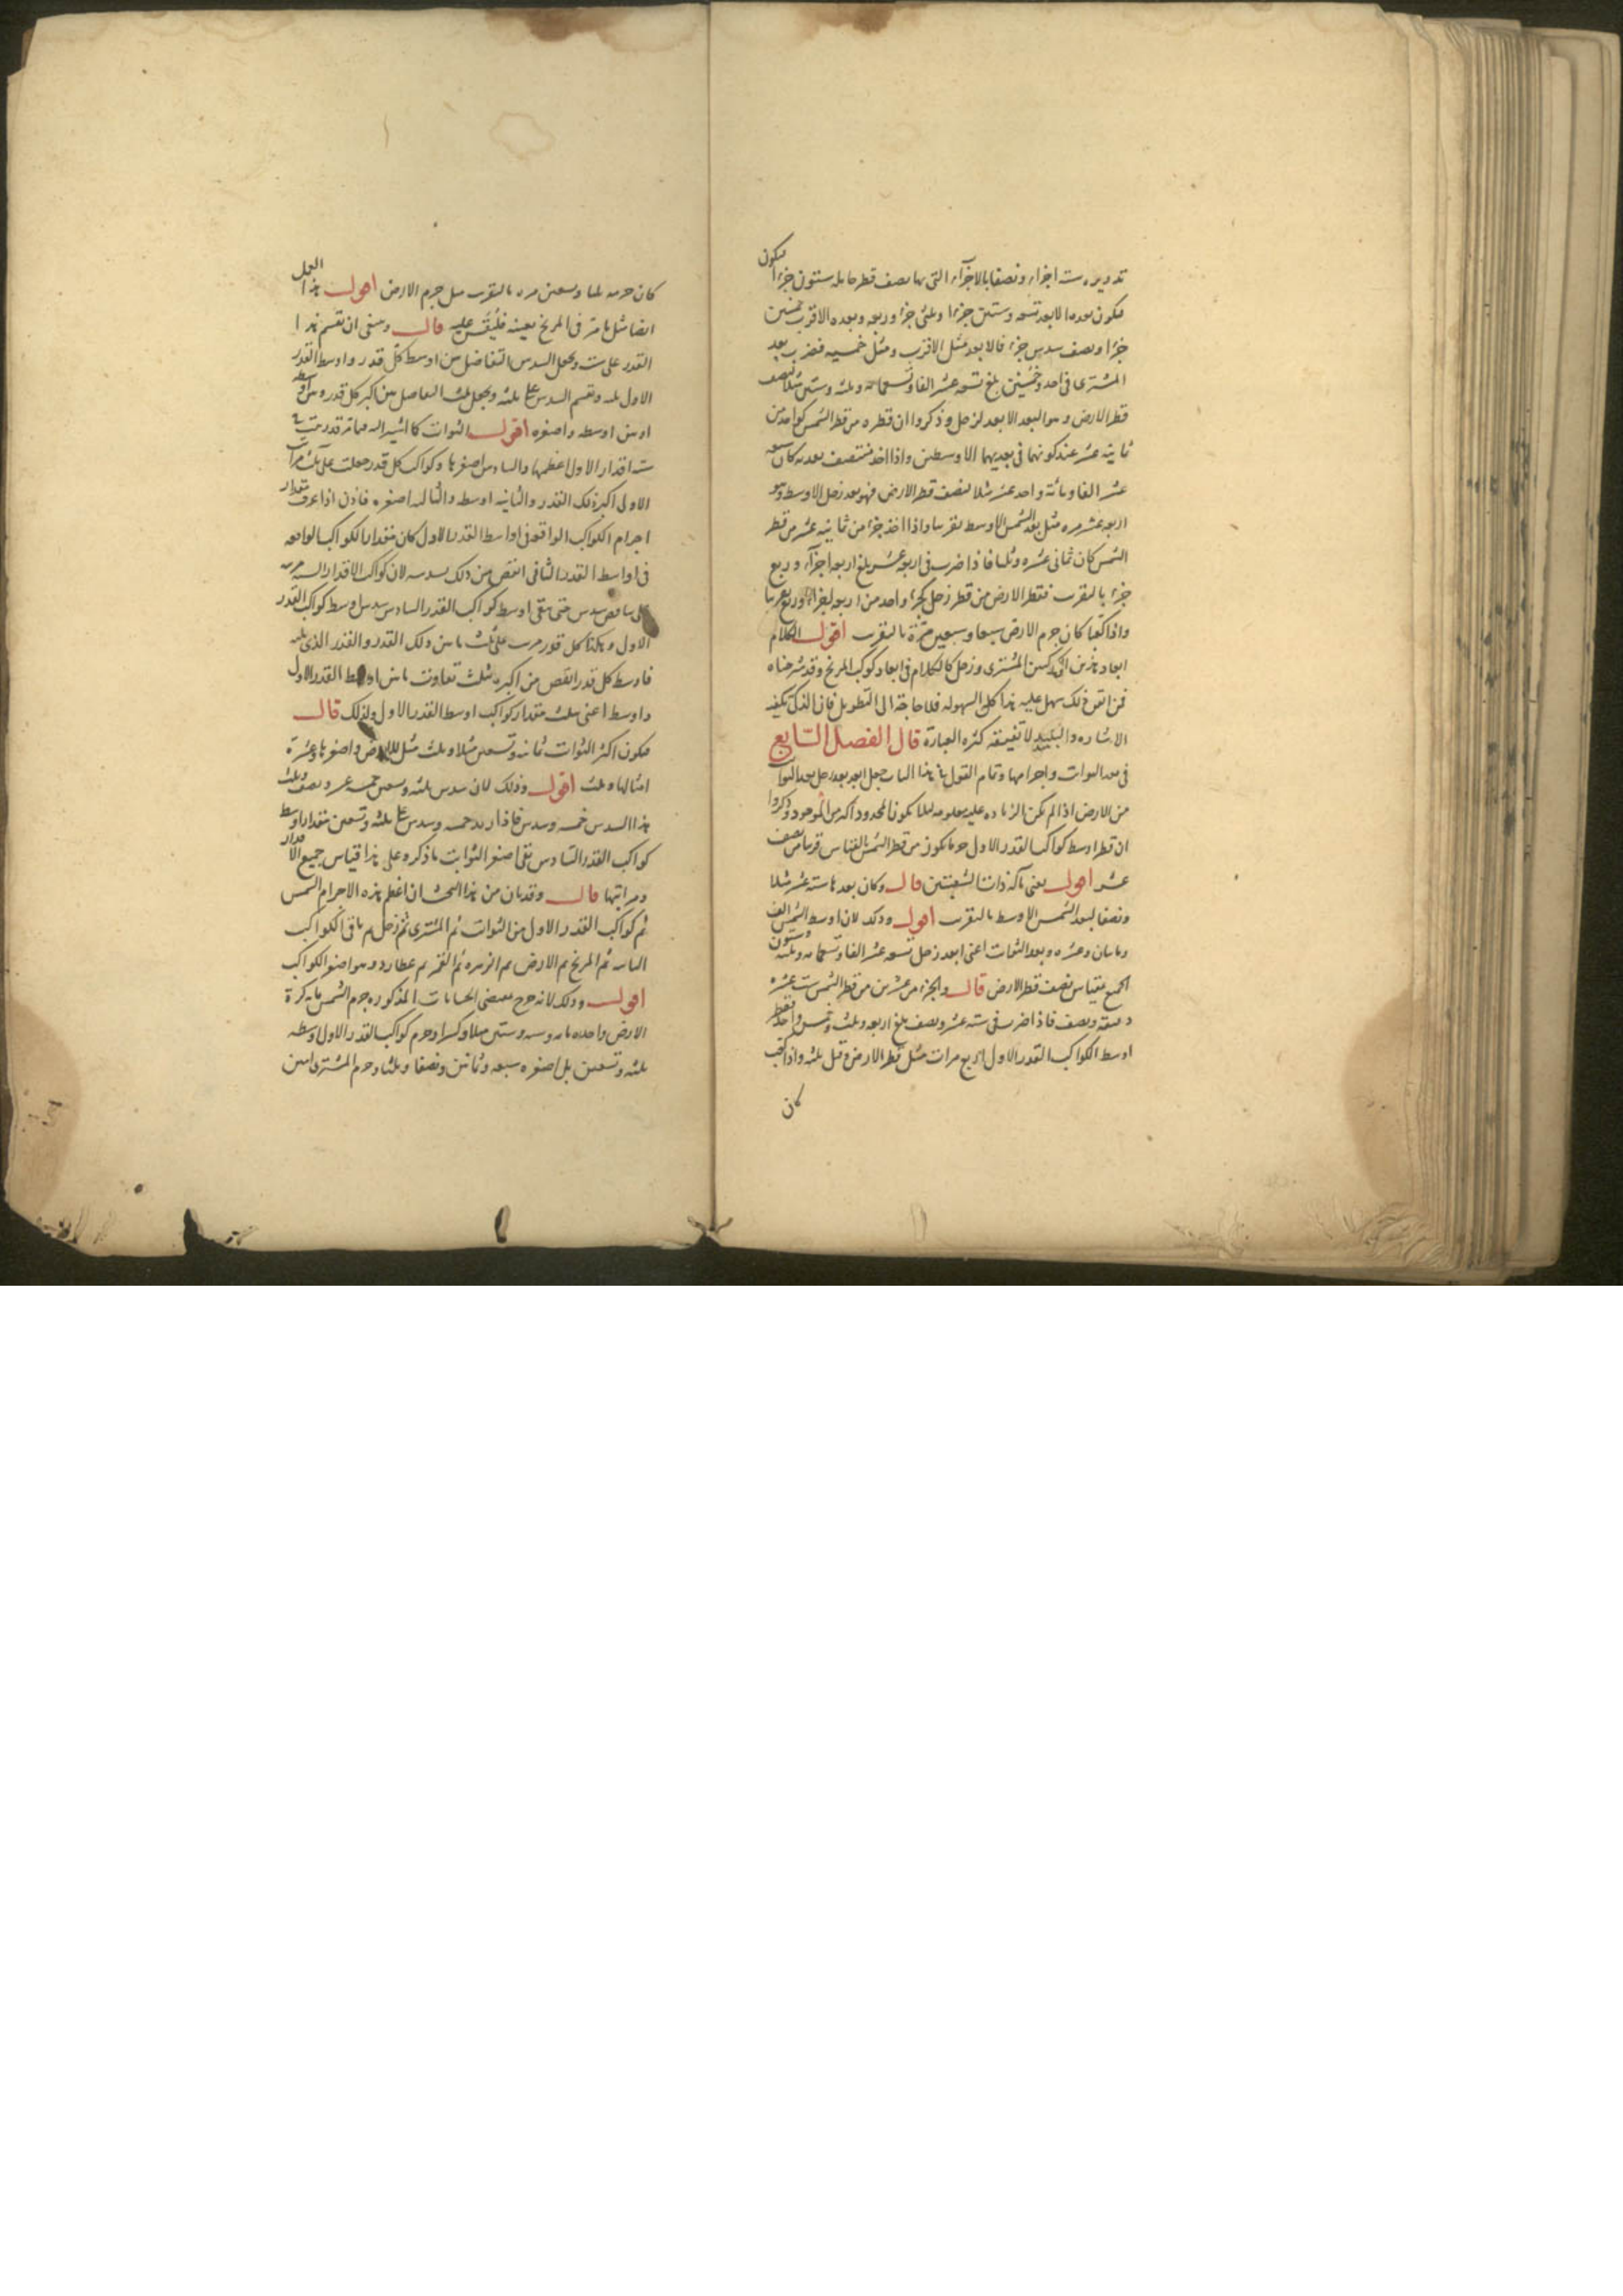 تدويره ست اجزاء ونصفا بالاجزاء التى بها نصف قطر حامله ستون جزءا فيكون
فيكون بعده الابعد تسعة وستين جزءا وثلثى جزء وربعه وبعده الاقرب خمسين
جزءا ونصف سدس جزء فالابعد مثل الاقرب ومثل خمسيه فنضرب بعد
المشترى فى احد وخمسين بلغ تسعة عشر الفا وتسعمائة وثلثة وستين مثلا لنصف
قطر الارض وهو البعد الابعد لزحل وذكروا ان قطره من قطر الشمس كواحد من
ثمانية عشر عند كونهما فى بعديهما الاوسطين واذا اخذ منتصف بعديه كان سبعة
عشر الفا ومائة واحد عشر مثلا لنصف قطر الارض فهو بعد زحل الاوسط وهو
اربعة عشر مرة مثل بعد الشمس الاوسط تقريبا واذا اخذ جزء من ثمانية عشر من قطر
الشمس كان ثمانى عشرة وثلثا فاذا ضرب فى اربعة عشر بلغ اربعة اجزاء وربع
جزء بالتقريب فقطر الارض من قطر زحل كجزء واحد من اربعة اجزاء وربع تقريبا
واذا كعبا كان جرم الارض سبعا وسبعين مرة بالتقريب اقول الكلام
ابعاد هذين المشترى وزحل كالكلام فى ابعاد كوكب المريخ وقد شرحناه
فمن اتقن ذلك سهل عليه هذا كل السهولة فلا حاجة الى التطويل فان الذكى تكفيه
الاشارة والبليد لا تفيمه كثرة العبارة قال الفصل السابع
فى بعد الثوابت واجرامها وتمام القول فى هذا الباب جعل ابعد بعد زحل بعد الثوابت
من الارض اذا لم تكن الزيادة عليه معلومة لئلا يكون المحدود اكثر من الموجود وذكروا
ان قطر اوسط كواكب القدر الاول جزءا يكون من قطر الشمس بالقياس قريبا من نصف
عشر اقول يعنى بآلة ذات الشعبتين قال وكان بعدها ستة عشر مثلا
ونصفا لبعد الشمس الاوسط بالتقريب اقول وذلك لان اوسط الشمس الف
ومائتان وعشرة وبعد الثوابت اعنى ابعد زحل تسعة عشر الفا وتسعمائة وثلثة وستون
الجميع بقياس نصف قطر الارض قال والجزء من عشرين من قطر الشمس ست عشرة
دقيقة ونصف فاذا ضرب فى ستة عشر ونصف بلغ اربعة وثلث وخمس واحد فقطر
اوسط الكواكب القدر الاول اربع مرات مثل قطر الارض وقيل ثلثة واذا كعب
كان
كان جرمه ثلثا وتسعين مرة بالتقريب مثل جرم الارض اقول هذا العمل
ايضا مثل ما مر فى المريخ بعينه فليقس عليه قال وينبغى ان تقسم هذا
القدر على ست وتجعل السدس التفاضل بين اوسط كل قدر واوسط القدر
الاول ثلثه وتقسم السدس على ثلثة وتجعل ثلث التفاضل بين اكبر كل قدر وبين اوسطه
او بين اوسطه واصغره اقول الثوابت كما اشير اليه فيما مر قد رتبت فى
ست اقدار الاول اعظمها والسادس اصغرها وكواكب كل قدر جعلت على ثلث مراتب
الاولى اكبر ذلك القدر والثانية اوسطه والثالثة اصغره فاذن اذا عرف مقدار
اجرام الكواكب الواقعة فى اواسط القدر الاول كان مقدار الكواكب الواقعة
فى اواسط القدر الثانى انقص من ذلك بسدسه لان كواكب الاقدار الستة مرتبة
على تناقص سدس حتى يبقى اوسط كواكب القدر السادس سدس اوسط كواكب القدر
الاول وهكذا كل قدر مرتب على ثلث ما بين ذلك القدر والقدر الذى يليه
فاوسط كل قدر انقص من اكبره بثلث تفاوت ما بين اوسط القدر الاول
واوسط اعنى بثلث مقدار كواكب اوسط القدر الاول ولذلك قال
فيكون اكبر الثوابت ثمانية وتسعين مثلا وثلث مثل للارض واصغرها عشرة
امثالها وثلث اقول وذلك لان سدس ثلثة وتسعين خمسة عشر ونصف وثلث
هذا السدس خمسة وسدس فاذا زيد خمسة وسدس على ثلثة وتسعين مقدار اوسط
كواكب القدر السادس بقى اصغر الثوابت ما ذكره وعلى هذا قياس جميع الاقدار
ومراتبها قال وقد بان من هذا البحث ان اعظم هذه الاجرام الشمس
ثم كواكب القدر الاول من الثوابت ثم المشترى ثم زحل ثم باقى الكواكب
الثابتة ثم المريخ ثم الارض ثم الزهرة ثم القمر ثم عطارد وهو اصغر الكواكب
اقول وذلك لانه خرج بمقتضى الحسابات المذكورة جرم الشمس مائة كرة
الارض واحدة مائة وستة وستين مثلا وكسرا وجرم كواكب القدر الاول اوسطه
ثلثة وتسعين بل اصغره سبعة وثمانين ونصفا وثلثا وجرم المشترى اثنين